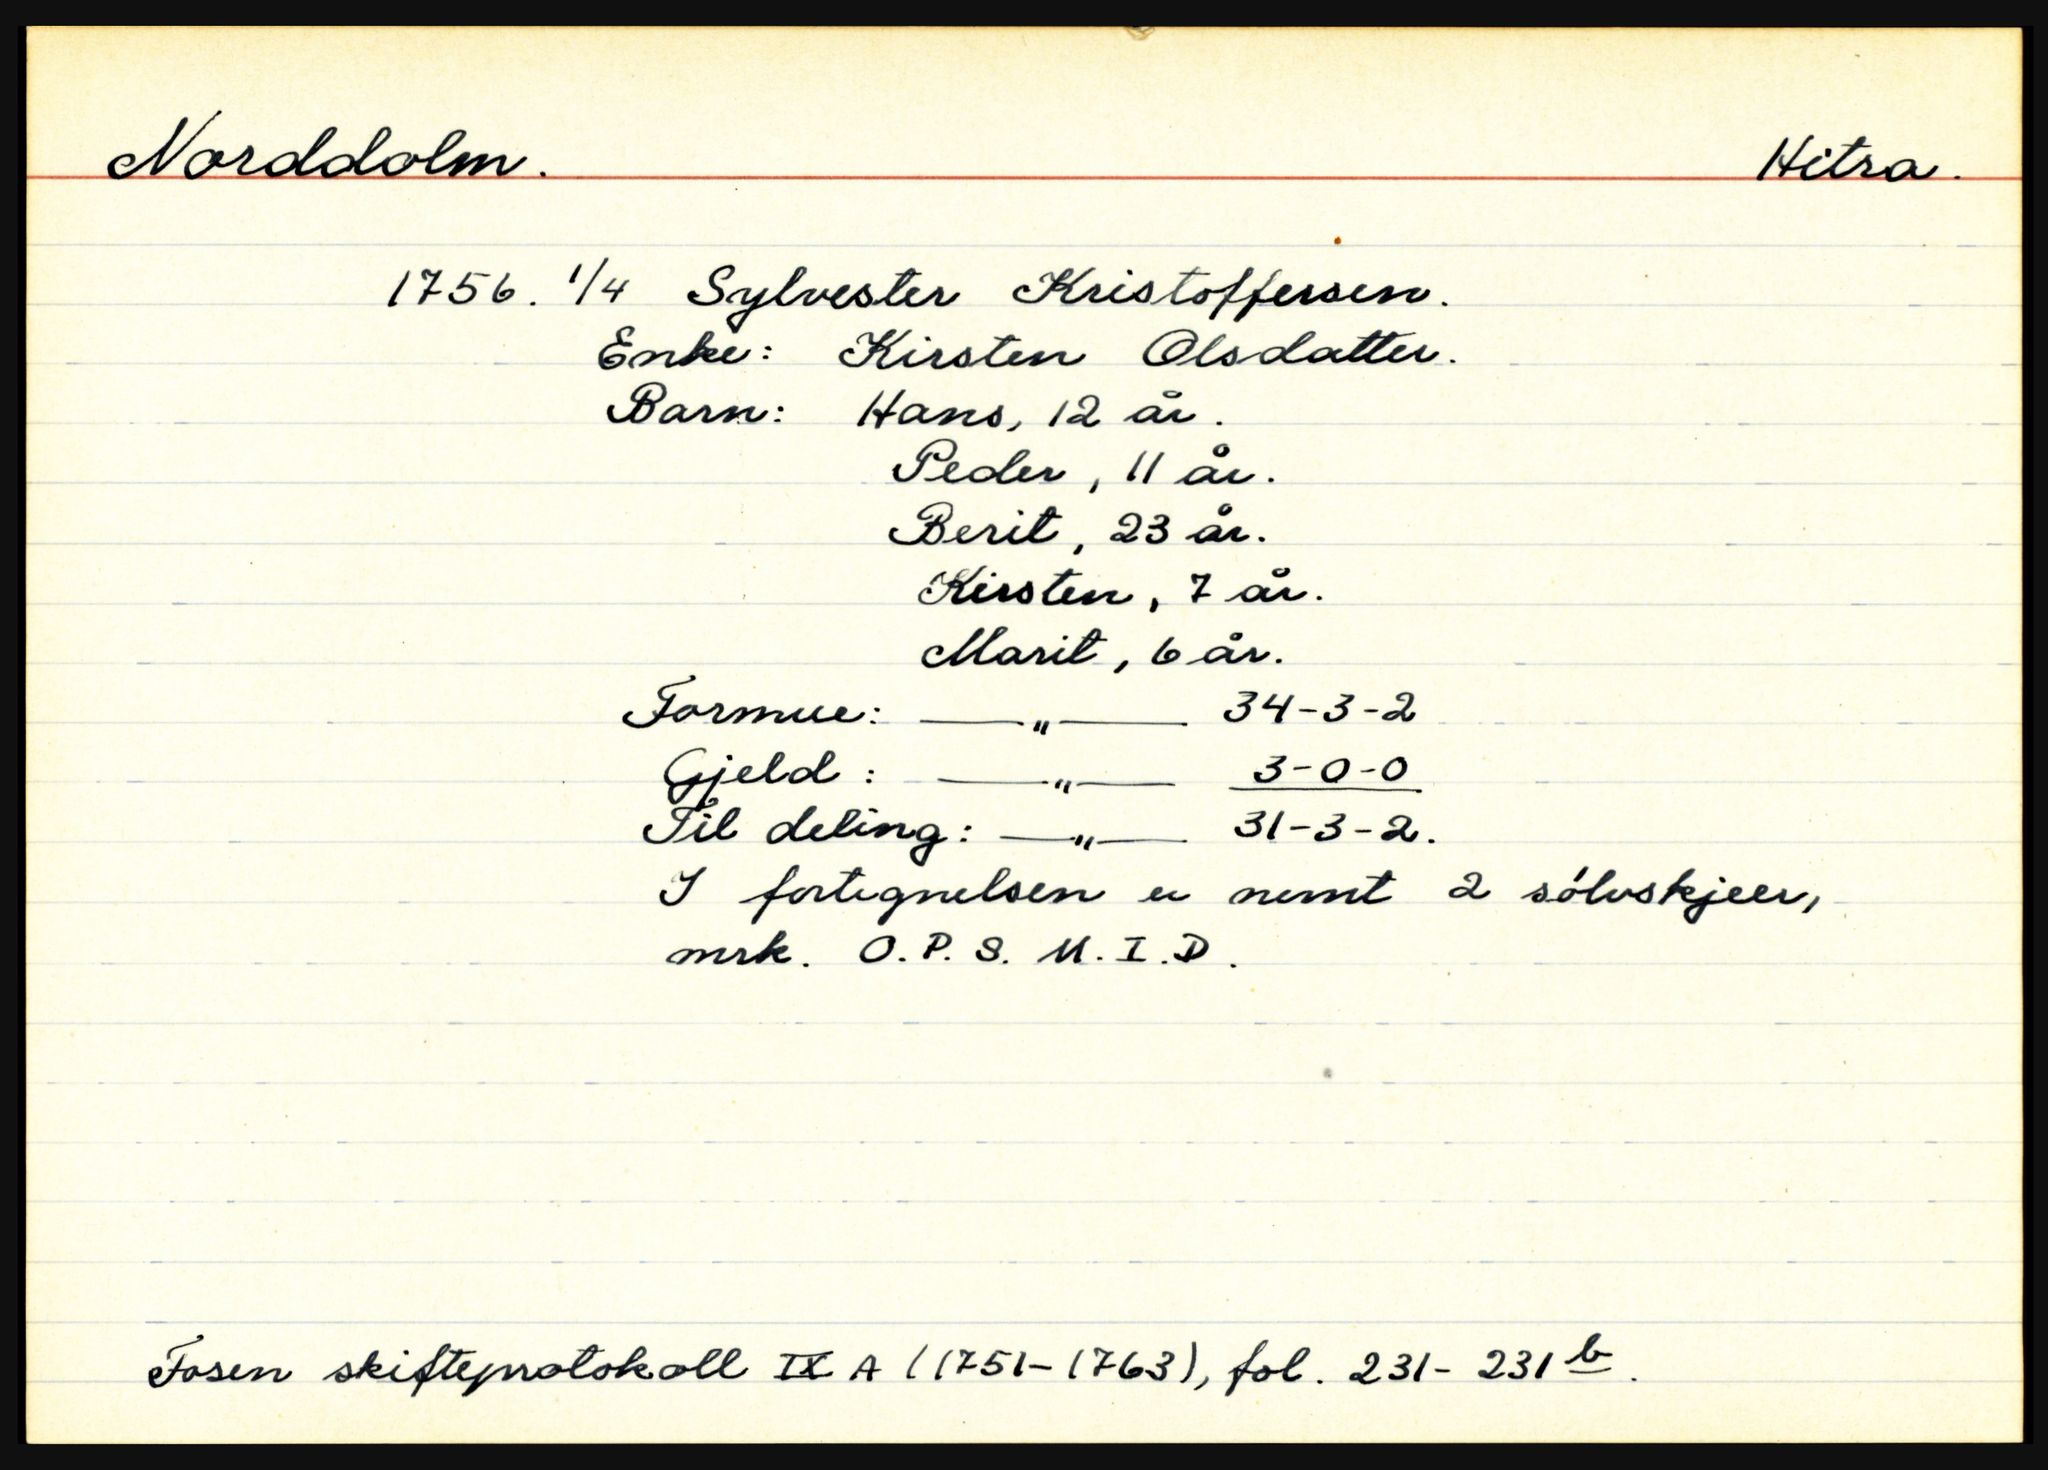 Norddolm. Hitra.
1756. 1/4 Sylvester Kristoffersen.
Enke: Kirsten Olsdatter.
Barn: Hans, 12 år.
Peder, 11 år.
Berit, 23 år.
Kirsten, 7 år.
Marit, 6 år.
Formue: —„— 34-3-2
Gjeld: —„— 3-0-0
Til deling: —„— 31-3-2.
I fortegnelsen er nemt 2 sölvskjeer,
mrk. O.P.S. M.I.D.
Fosen skifteprotokoll IX A (1751-1763), fol. 231-231b.